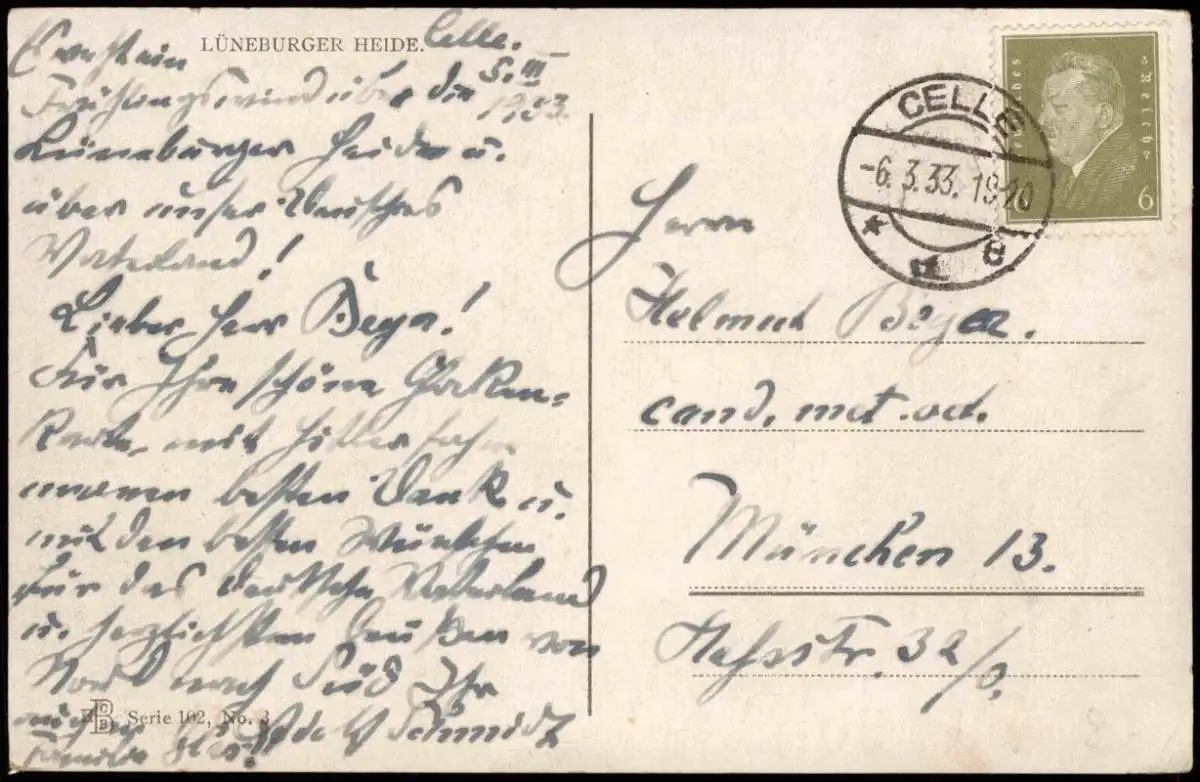 LÜNEBURGER HEIDE.
Celle.
5. III
1933.
Frühlingswind über die
Lüneburger Heide u.
über unser Deutsches
Vaterland!
Lieber Herr Beyer!
Für Ihre schöne
Karte, mit Hitler
meinen besten Dank u.
mit den besten Wünschen
für das deutsche Vaterland
u. herzlichsten Grüßen von
Nord nach Süd Ihr
Schmidt
Familie
BCDB Serie 102, No. 3
CELLE
-6.3.33.19-20
Deutsches Reich
6
Herrn
Helmut
cand. med.
München 13.
Hessstr. 32/0.